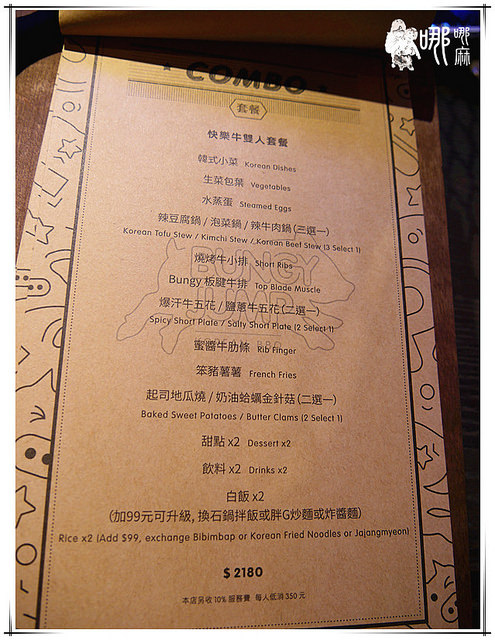 哪哪麻
COMBO
套餐
快樂牛雙人套餐
韓式小菜 Korean Dishes
生菜包葉 Vegetables
水蒸蛋 Steamed Eggs
辣豆腐鍋 / 泡菜鍋 / 辣牛肉鍋 (三選一)
Korean Tofu Stew / Kimchi Stew / Korean Beef Stew (3 Select 1)
燒烤牛小排 Short Ribs
Bungy 板腱牛排 Top Blade Muscle
爆汗牛五花 / 鹽蔥牛五花 (二選一)
Spicy Short Plate / Salty Short Plate (2 Select 1)
蜜醬牛肋條 Rib Finger
笨豬薯薯 French Fries
起司地瓜燒 / 奶油蛤蠣金針菇 (二選一)
Baked Sweet Potatoes / Butter Clams (2 Select 1)
甜點 x2 Dessert x2
飲料 x2 Drinks x2
白飯 x2
(加99元可升級, 換石鍋拌飯或胖G炒麵或炸醬麵)
Rice x2 (Add $99, exchange Bibimbap or Korean Fried Noodles or Jajangmyeon)
$ 2180
本店另收 10% 服務費 每人低消 350 元
BUNGY
JUMP
BBQ